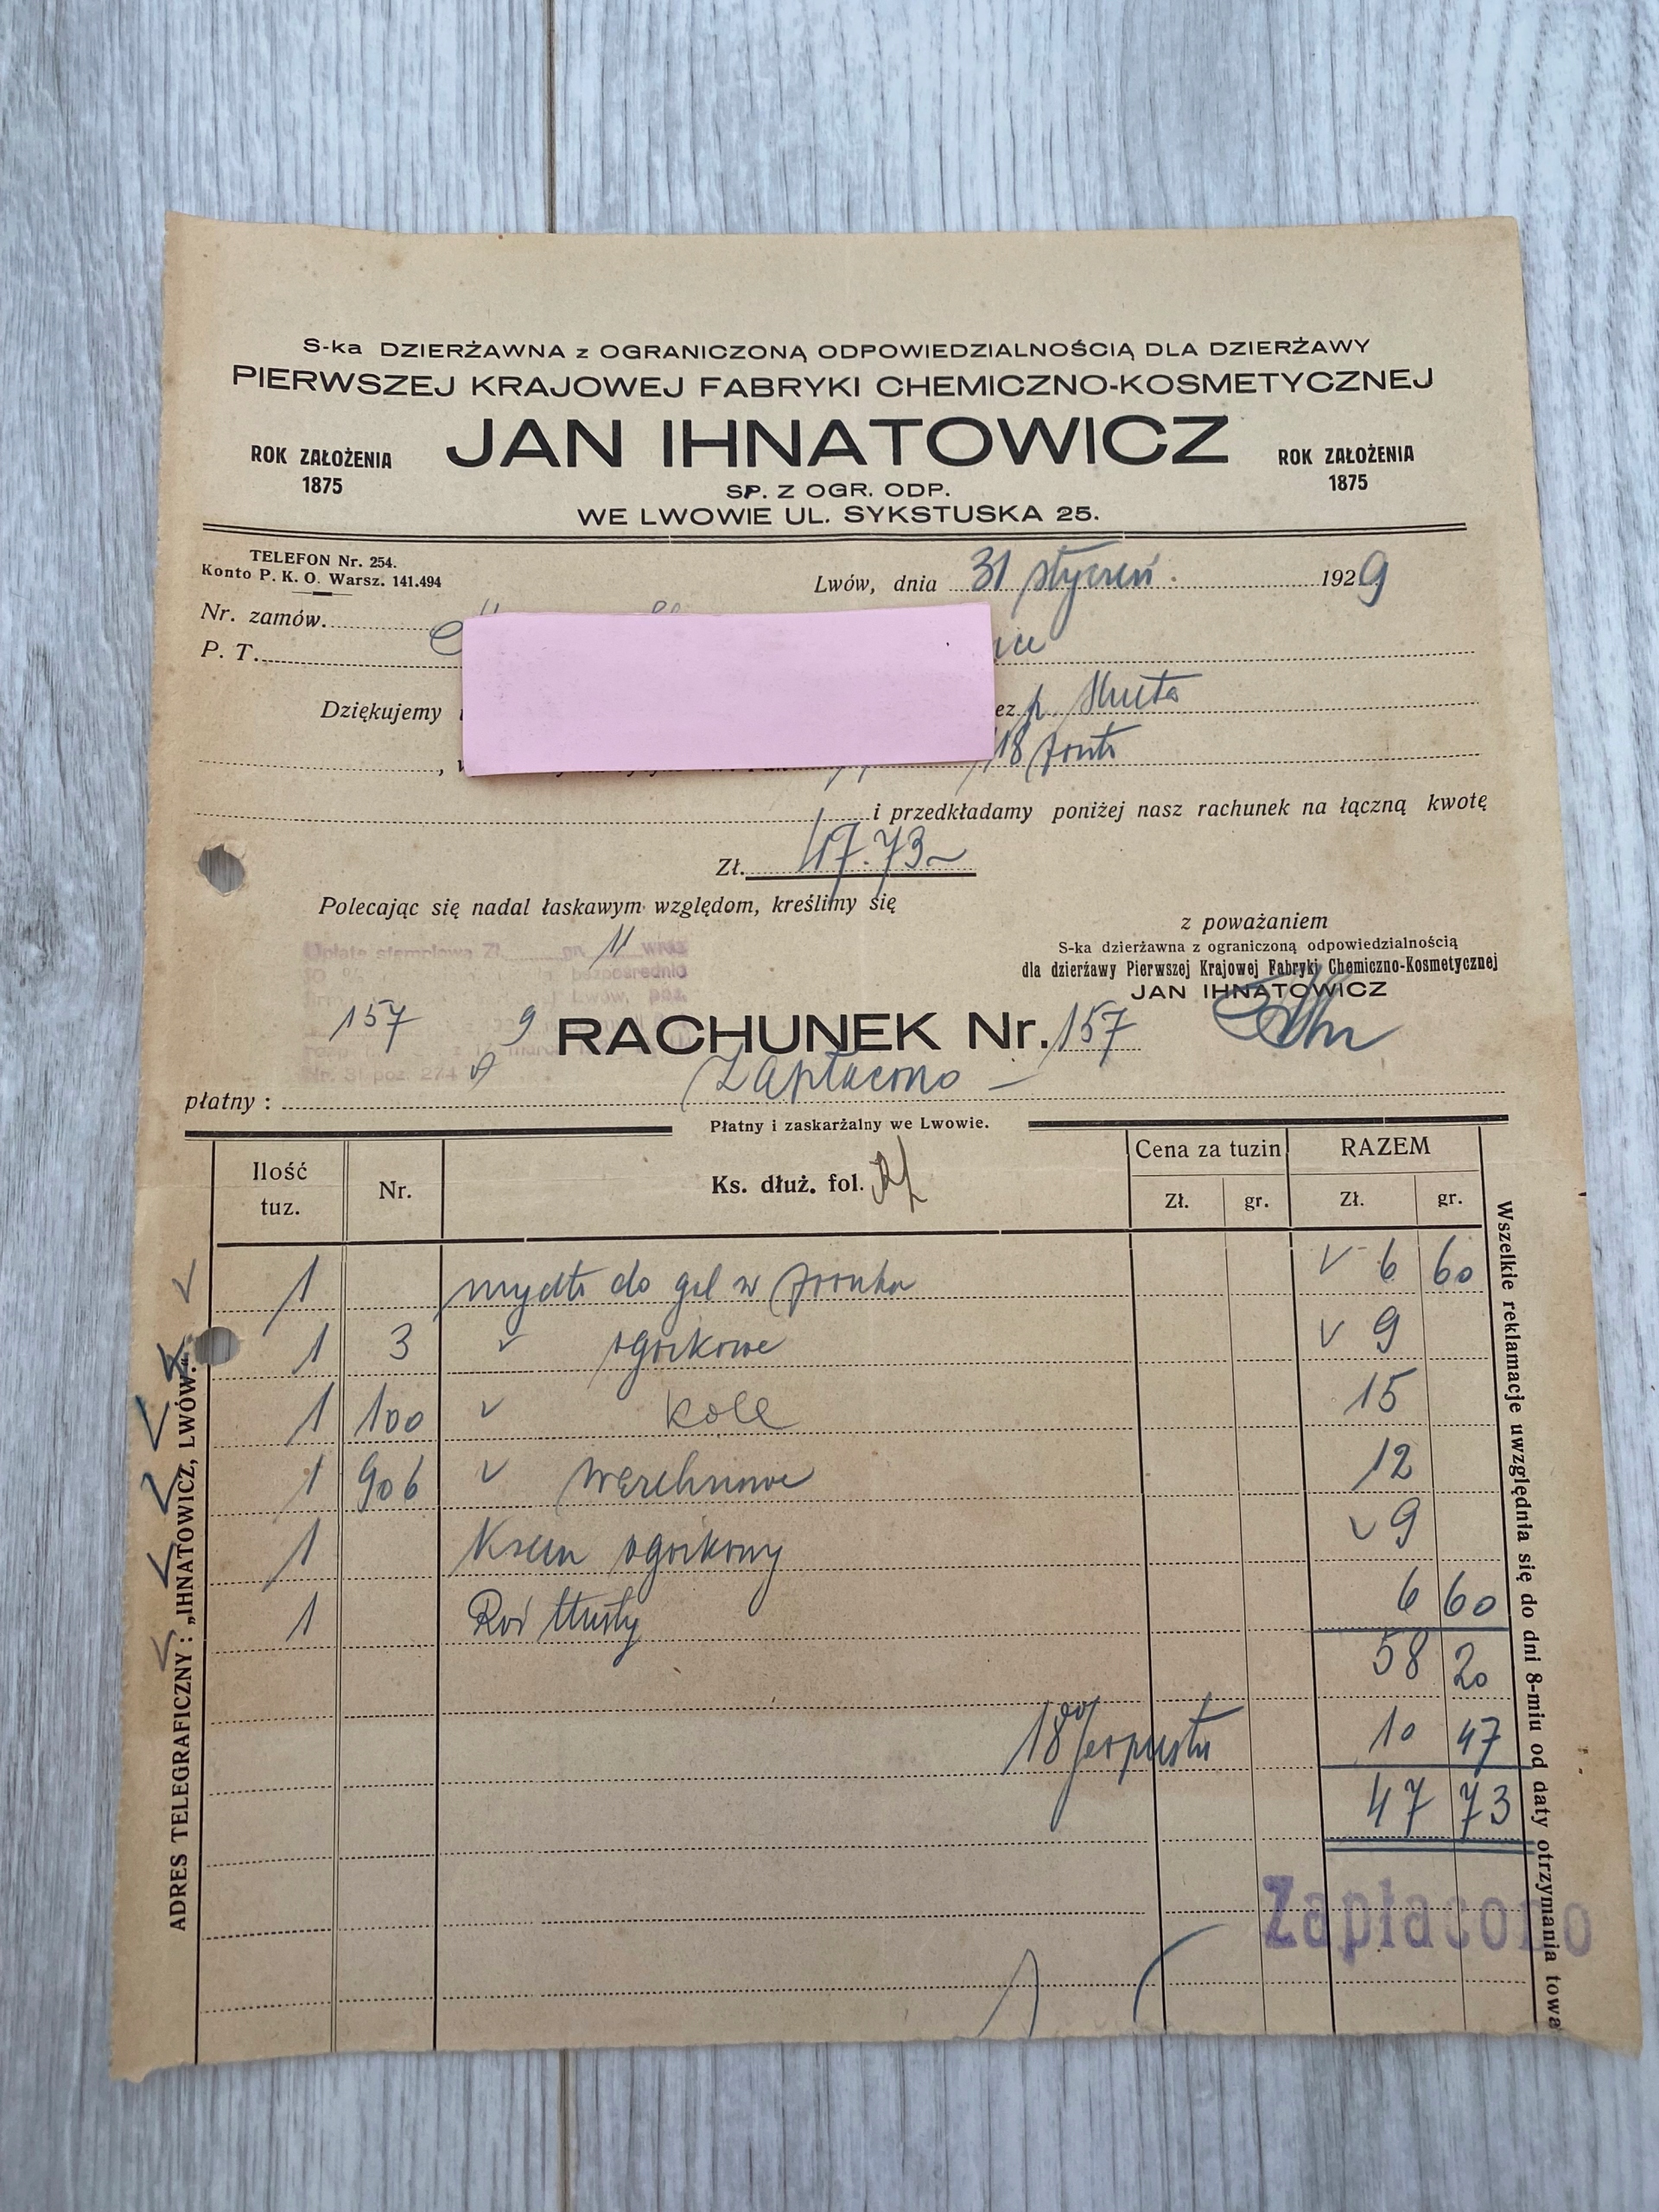 S-ka DZIERŻAWNA z OGRANICZONĄ ODPOWIEDZIALNOŚCIĄ DLA DZIERŻAWY
PIERWSZEJ KRAJOWEJ FABRYKI CHEMICZNO-KOSMETYCZNEJ
JAN IHNATOWICZ
ROK ZAŁOŻENIA 1875
ROK ZAŁOŻENIA 1875
SP. Z OGR. ODP.
WE LWOWIE UL. SYKSTUSKA 25.
TELEFON Nr. 254.
Konto P. K. O. Warsz. 141.494
Lwów, dnia 31 styczeń 1929
Nr. zamów.
P. T.
Dziękujemy ez p.
18
i przedkładamy poniżej nasz rachunek na łączną kwotę
Zł. 47.73
Polecając się nadal łaskawym względom, kreślimy się
z poważaniem
S-ka dzierżawna z ograniczoną odpowiedzialnością
dla dzierżawy Pierwszej Krajowej Fabryki Chemiczno-Kosmetycznej
JAN IHNATOWICZ
Opłata stemplowa Zł. gr. 11 wraz
10 % bezpośrednio
Lwów, poz.
157 9
Nr. 31 poz. 274
RACHUNEK Nr. 157
płatny : Zapłacono
Płatny i zaskarżalny we Lwowie.
Ilość tuz. Nr. Ks. dłuż. fol. Cena za tuzin RAZEM
Zł. gr. Zł. gr.
1 mydło do gol w 6 60
1 3 ogórkowe 9
1 100 15
1 906 12
1 Krem ogórkowy 9
1 tłusty 6 60
58 20
18% 10 47
47 73
Zapłacono
ADRES TELEGRAFICZNY : „IHNATOWICZ, LWÓW."
Wszelkie reklamacje uwzględnia się do dni 8-miu od daty otrzymania towa